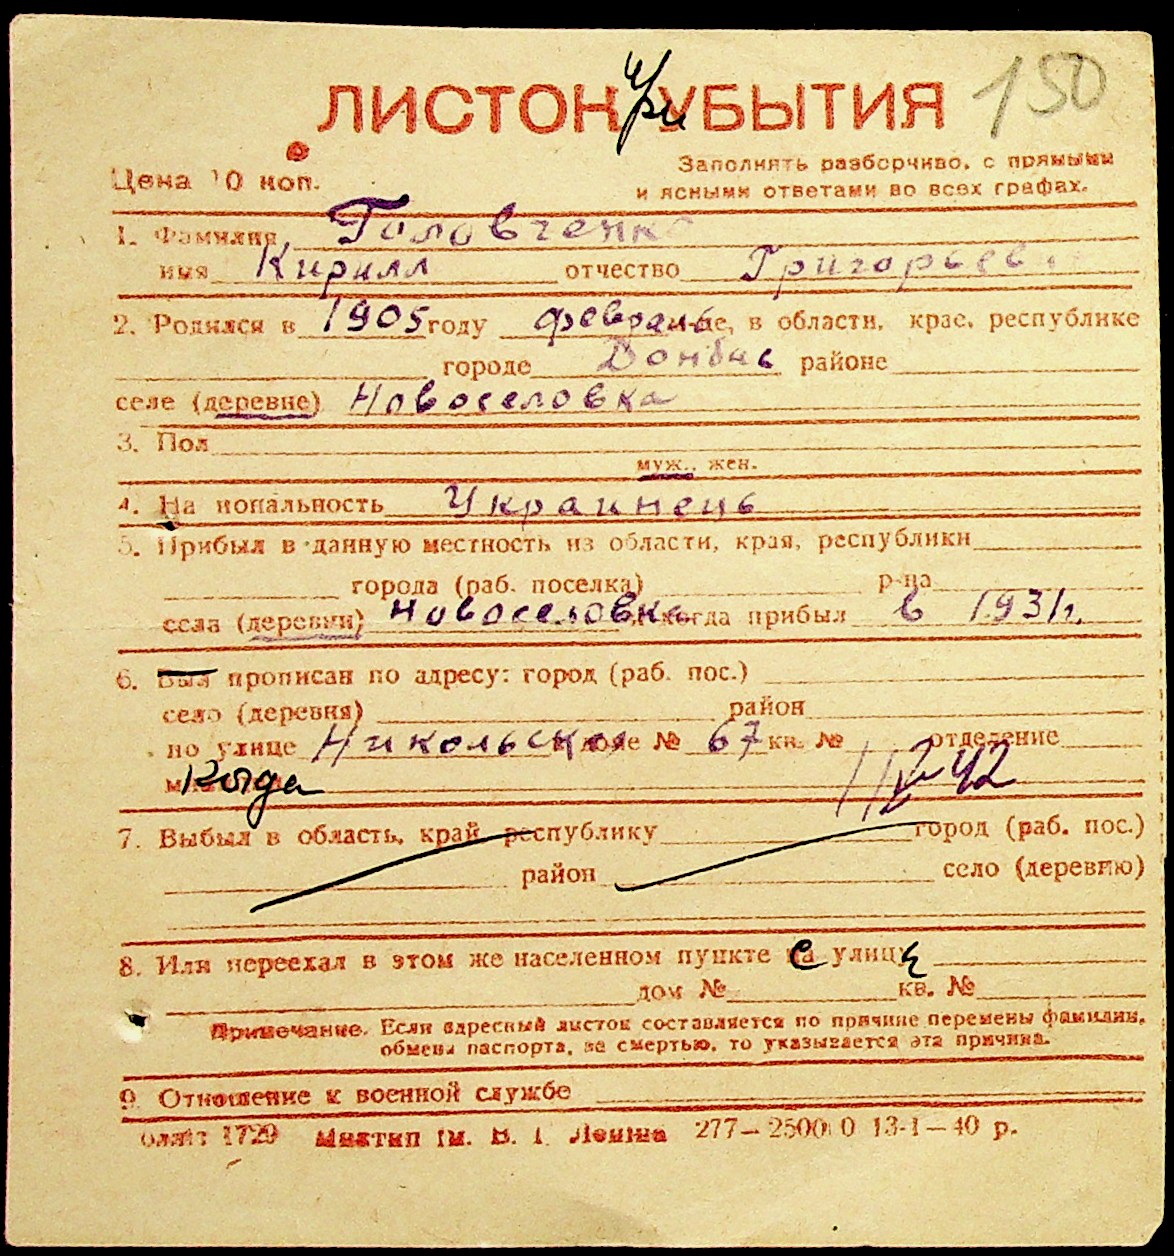 150
ЛИСТОК при УБЫТИЯ
Цена 10 коп.
Заполнять разборчиво, с прямыми
и ясными ответами во всех графах.
1. Фамилия Головченко
имя Кирилл отчество Григорьев
2. Родился в 1905 году февраль м-це, в области, крае, республике
городе Донбас районе
селе (деревне) Новоселовка
3. Пол
муж., жен.
4. Национальность Украинець
5. Прибыл в данную местность из области, края, республики
города (раб. поселка) р-на
села (деревни) Новоселовка когда прибыл в 1931 г.
6. Был прописан по адресу: город (раб. пос.)
село (деревня) район
по улице Никольская доме № 67 кв. № отделение
Когда 42
7. Выбыл в область, край, республику город (раб. пос.)
район село (деревню)
8. Или переехал в этом же населенном пункте с улицы
дом № кв. №
Примечание. Если адресный листок составляется по причине перемены фамилии,
обмены паспорта, за смертью, то указывается эта причина.
9. Отношение к военной службе
1729 Миктип ім. В. І. Леніна 277—25000 13-I—40 р.